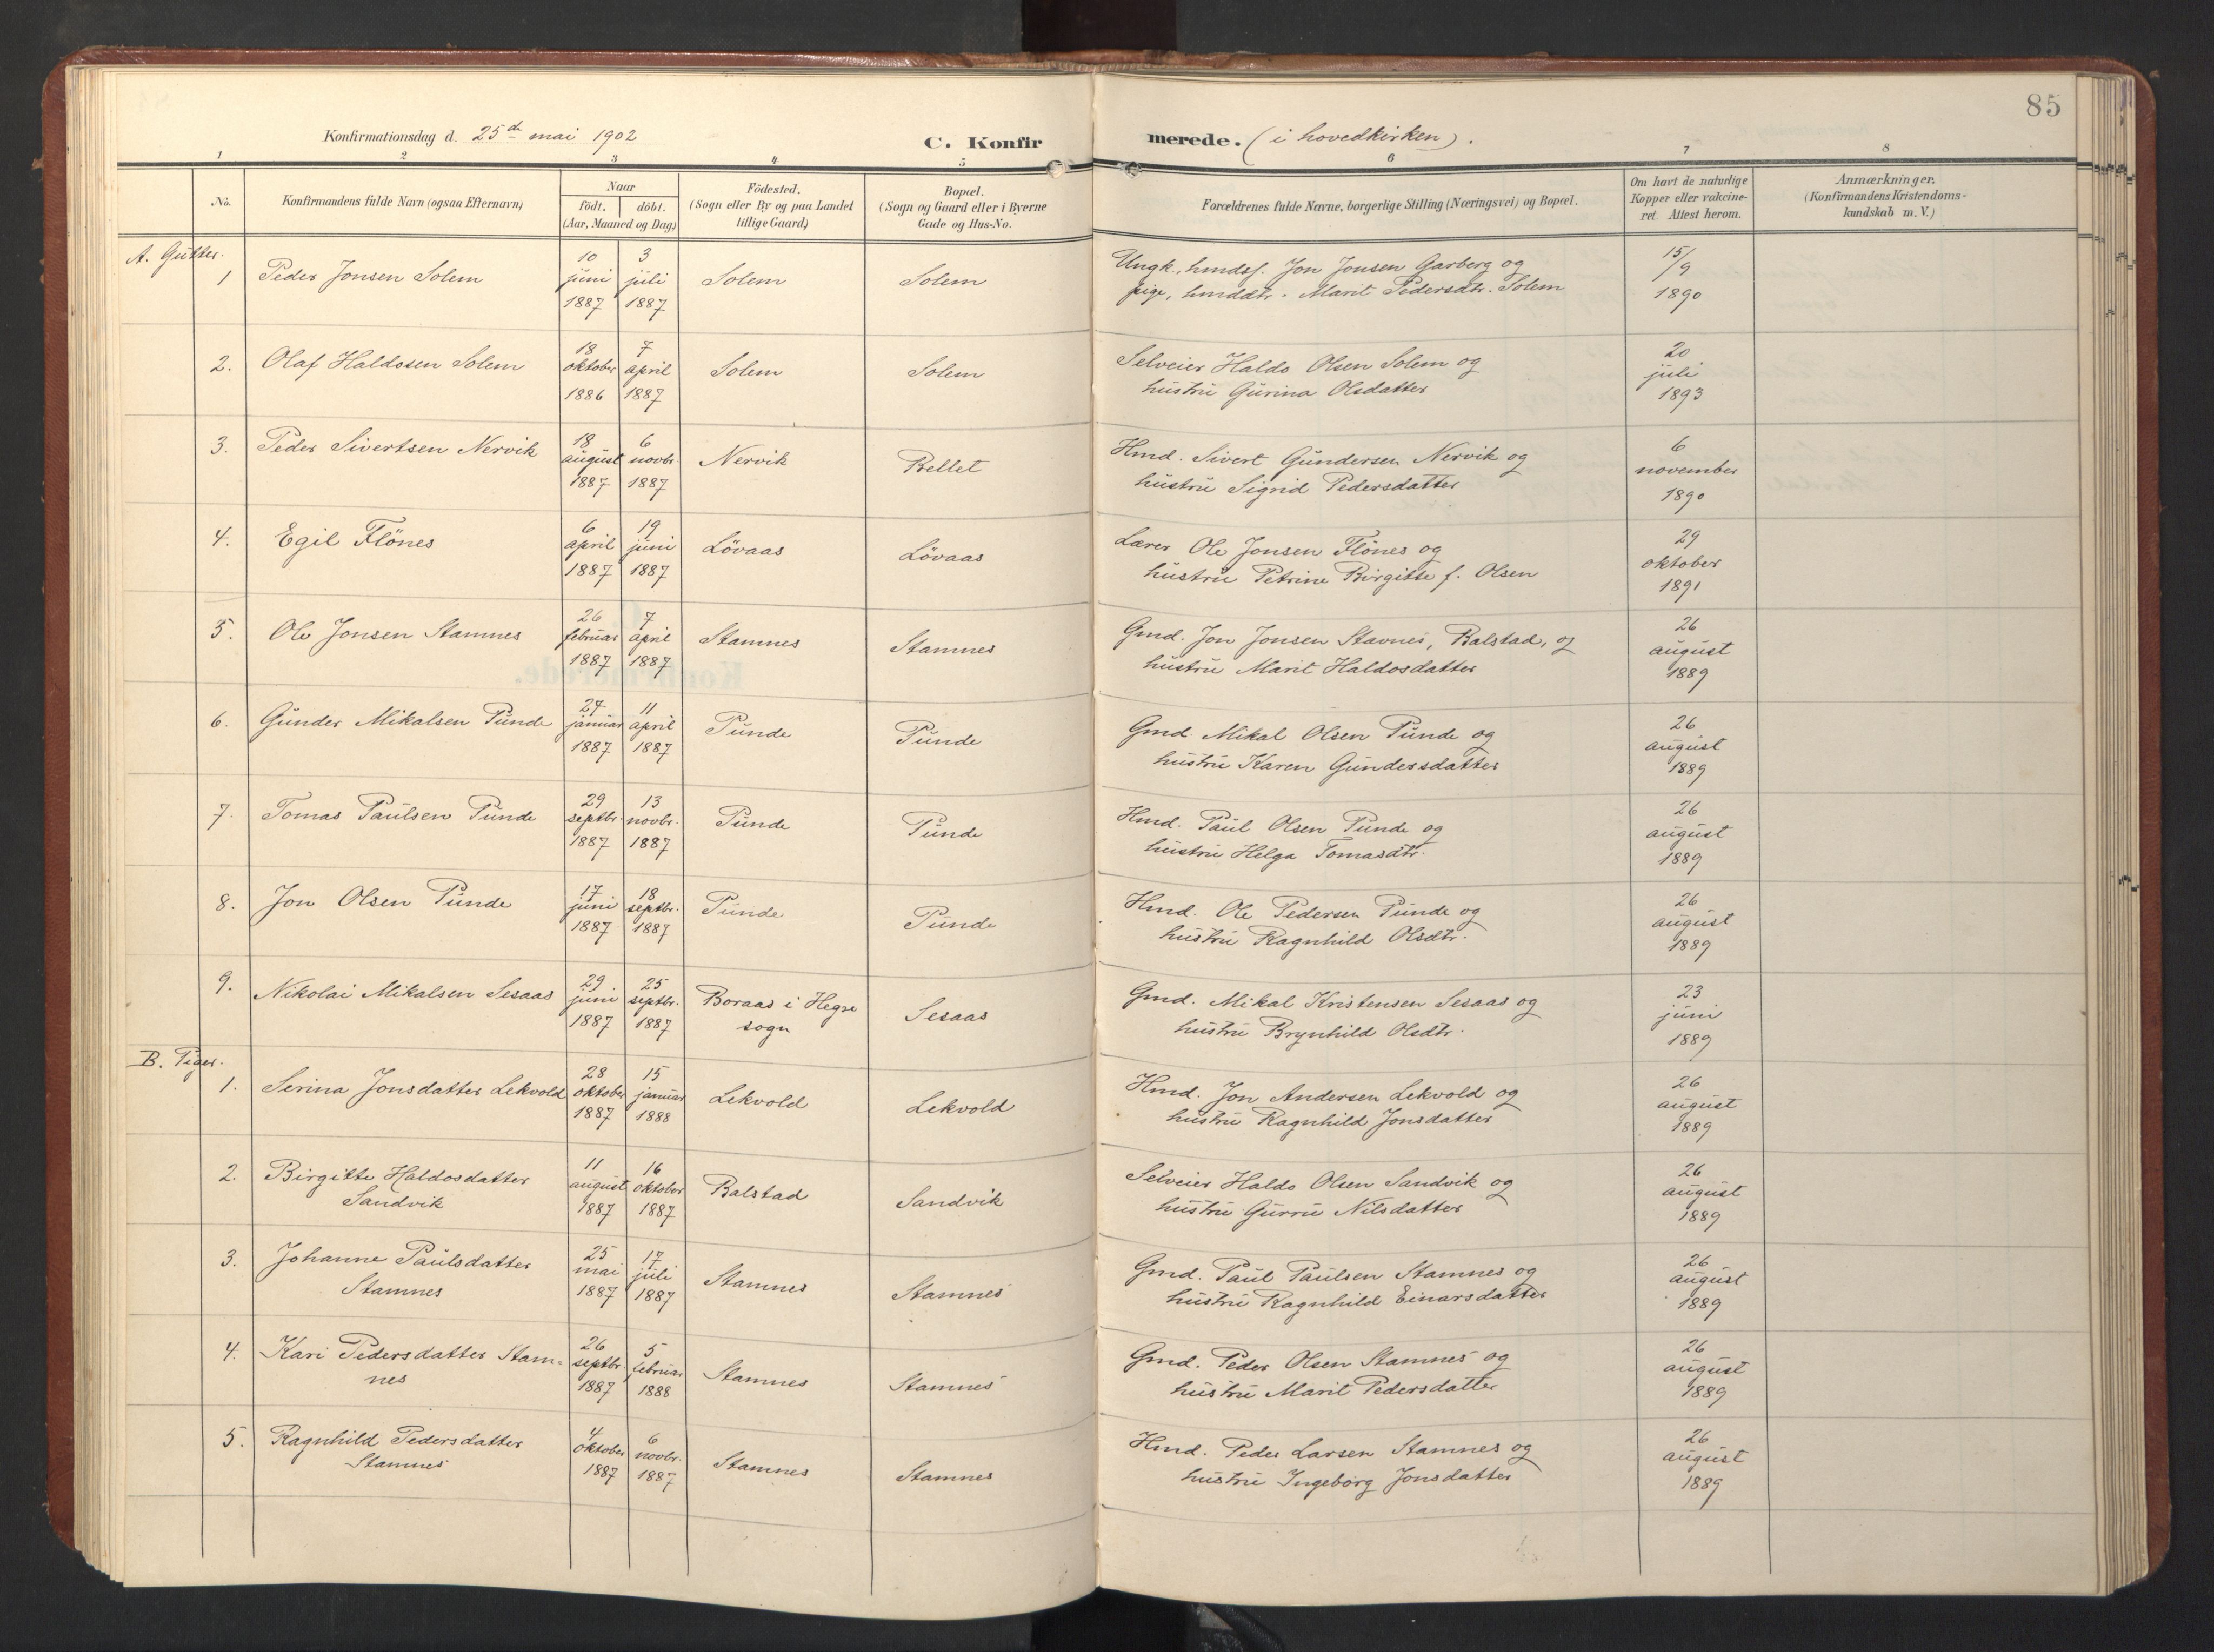 85
Konfirmationsdag d. 25de mai 1902
C. Konfirmerede. (i hovedkirken).
1 2 3 4 5 6 7 8
No.
Konfirmandens fulde Navn (ogsaa Efternavn)
Naar
födt. döbt.
(Aar, Maaned og Dag)
Födested.
(Sogn eller By og paa Landet
tillige Gaard)
Bopæl.
(Sogn og Gaard eller i Byerne
Gade og Hus-No.
Forældrenes fulde Navne, borgerlige Stilling (Næringsvei) og Bopæl.
Om havt de naturlige
Kopper eller vakcine-
ret Attest herom.
Anmærkninger.
(Konfirmandens Kristendoms-
kundskab m. V.)
A. Gutter.
1 Peder Jonsen Solem
10 juni 1887
3 juli 1887
Solem
Solem
Ungk., hmdsf. Jon Jonsen Garberg og
pige, hmddtr. Marit Pedersdtr. Solem
15/9 1890
2. Olaf Haldosen Solem
18 oktober 1886
7 april 1887
Solem
Solem
Selveier Haldo Olsen Solem og
hustru Gurina Olsdatter
20 juli 1893
3. Peder Sivertsen Nervik
18 august 1887
6 novbr. 1887
Nervik
Rellet
Hmd. Sivert Gundersen Nervik og
hustru Sigrid Pedersdatter
6 november 1890
4. Egil Flönes
6 april 1887
19 juni 1887
Lövaas
Lövaas
Lærer Ole Jonsen Flönes og
hustru Petrine Birgitte f. Olsen
29 oktober 1891
5. Ole Jonsen Stamnes
26 februar 1887
7 april 1887
Stamnes
Stamnes
Gmd. Jon Jonsen Stavnes, Balstad, og
hustru Marit Haldosdatter
26 august 1889
6. Gunder Mikalsen Punde
27 januar 1887
11 april 1887
Punde
Punde
Gmd. Mikal Olsen Punde og
hustru Karen Gundersdatter
26 august 1889
7. Tomas Paulsen Punde
29 septbr. 1887
13 novbr. 1887
Punde
Punde
Hmd. Paul Olsen Punde og
hustru Helga Tomasdtr.
26 august 1889
8. Jon Olsen Punde
17 juni 1887
18 septbr. 1887
Punde
Punde
Hmd. Ole Pedersen Punde og
hustru Ragnhild Olsdtr.
26 august 1889
9. Nikolai Mikalsen Sesaas
29 juni 1887
25 septbr. 1887
Boraas i Hegre
sogn
Sesaas
Gmd. Mikal Kristensen Sesaas og
hustru Brynhild Olsdtr.
23 juni 1889
B. Piger.
1. Serina Jonsdatter Lekvold
28 oktober 1887
15 januar 1888
Lekvold
Lekvold
Hmd. Jon Andersen Lekvold og
hustru Ragnhild Jonsdatter
26 august 1889
2. Birgitte Haldosdatter
Sandvik
11 august 1887
16 oktober 1887
Balstad
Sandvik
Selveier Haldo Olsen Sandvik og
hustru Gurru Nilsdatter
26 august 1889
3. Johanne Paulsdatter
Stamnes
25 mai 1887
17 juli 1887
Stamnes
Stamnes
Gmd. Paul Paulsen Stamnes og
hustru Ragnhild Einarsdatter
26 august 1889
4. Kari Pedersdatter Stam-
nes
26 septbr. 1887
5 februar 1888
Stamnes
Stamnes
Gmd. Peder Olsen Stamnes og
hustru Marit Pedersdatter
26 august 1889
5. Ragnhild Pedersdatter
Stamnes
4 oktober 1887
6 novbr. 1887
Stamnes
Stamnes
Hmd. Peder Larsen Stamnes og
hustru Ingeborg Jonsdatter
26 august 1889